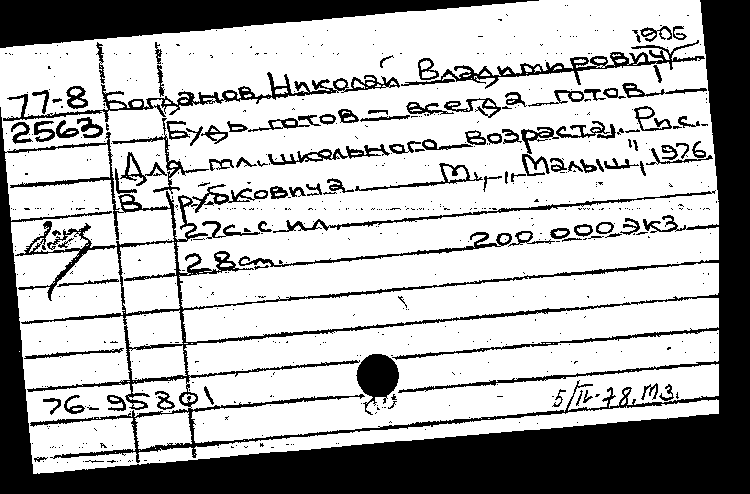 1906
77-8 Богданов, Николай Владимирович
2563 Будь готов - всегда готов!
Для мл. школьного возраста. Рис.
В Трубковича. М., „Малыш", 1976.
27с. с ил.
28 см. 200 000 экз.
76-95801
5/IV-78. МЗ.